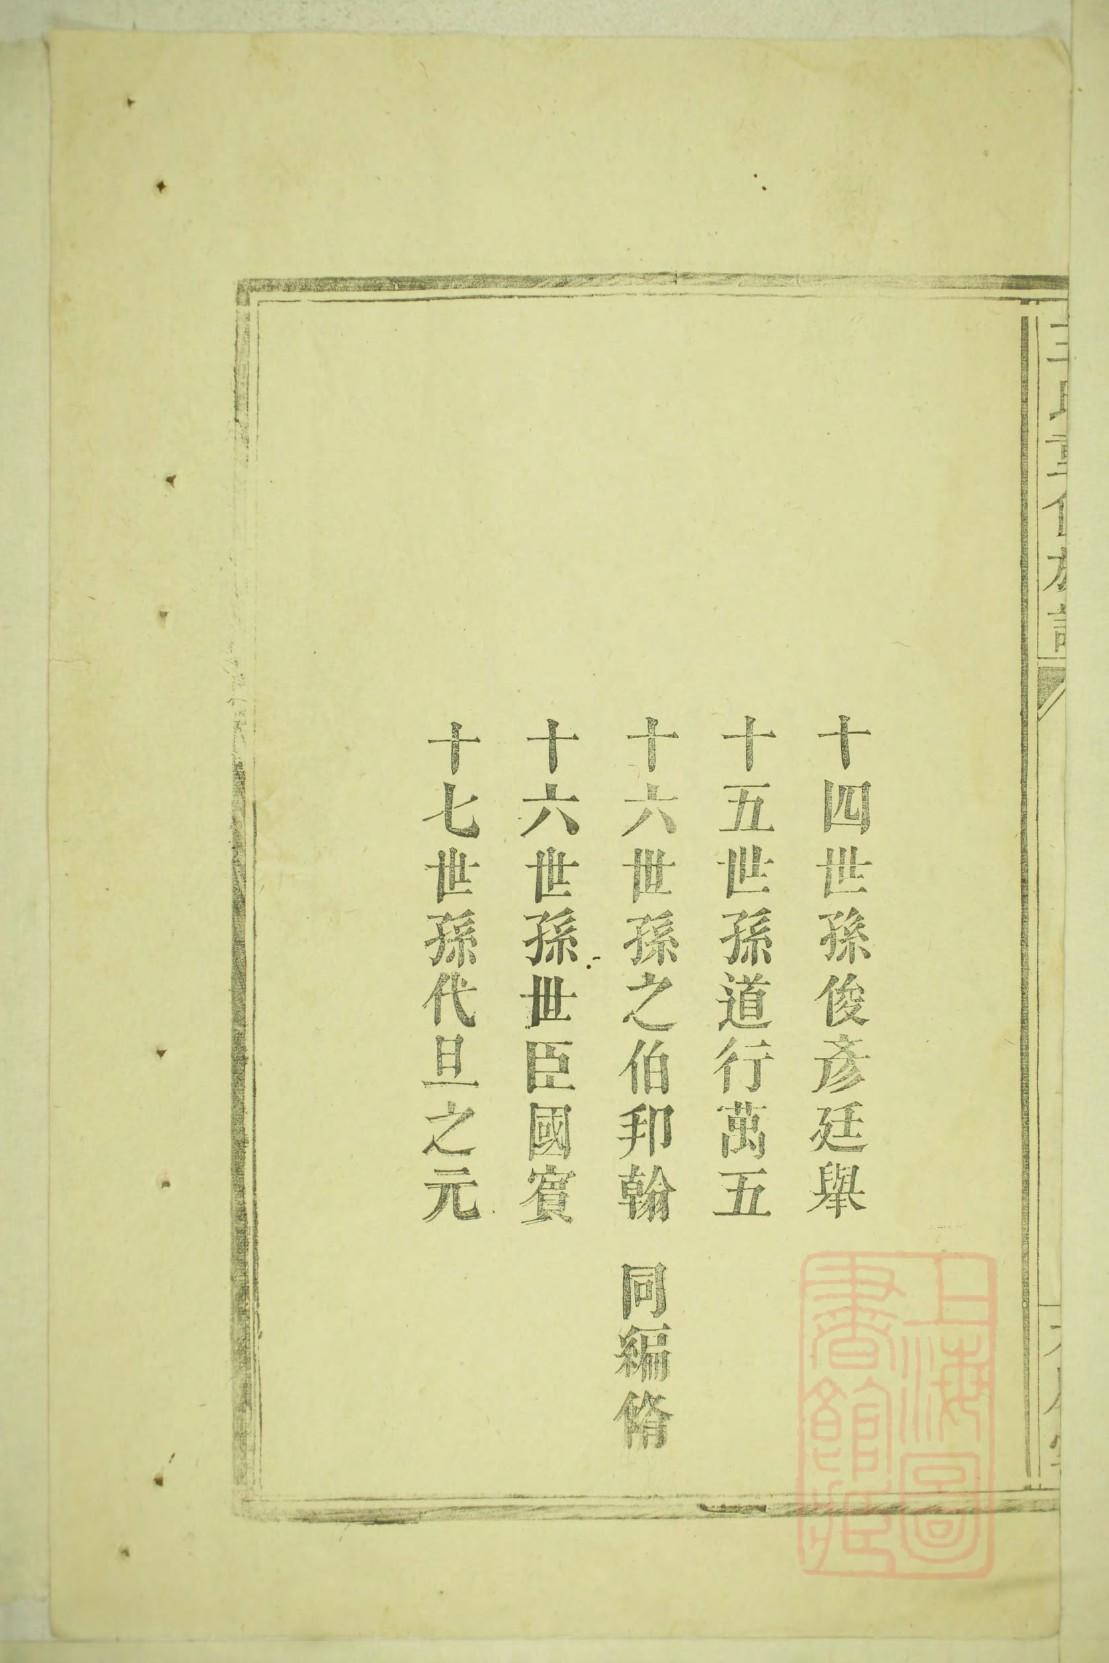 十四世孫俊彥廷舉
十五世孫道行萬五
十六世孫之伯邦翰
十六世孫世臣國賓
十七世孫代旦之元
同編脩
上海圖
書館藏